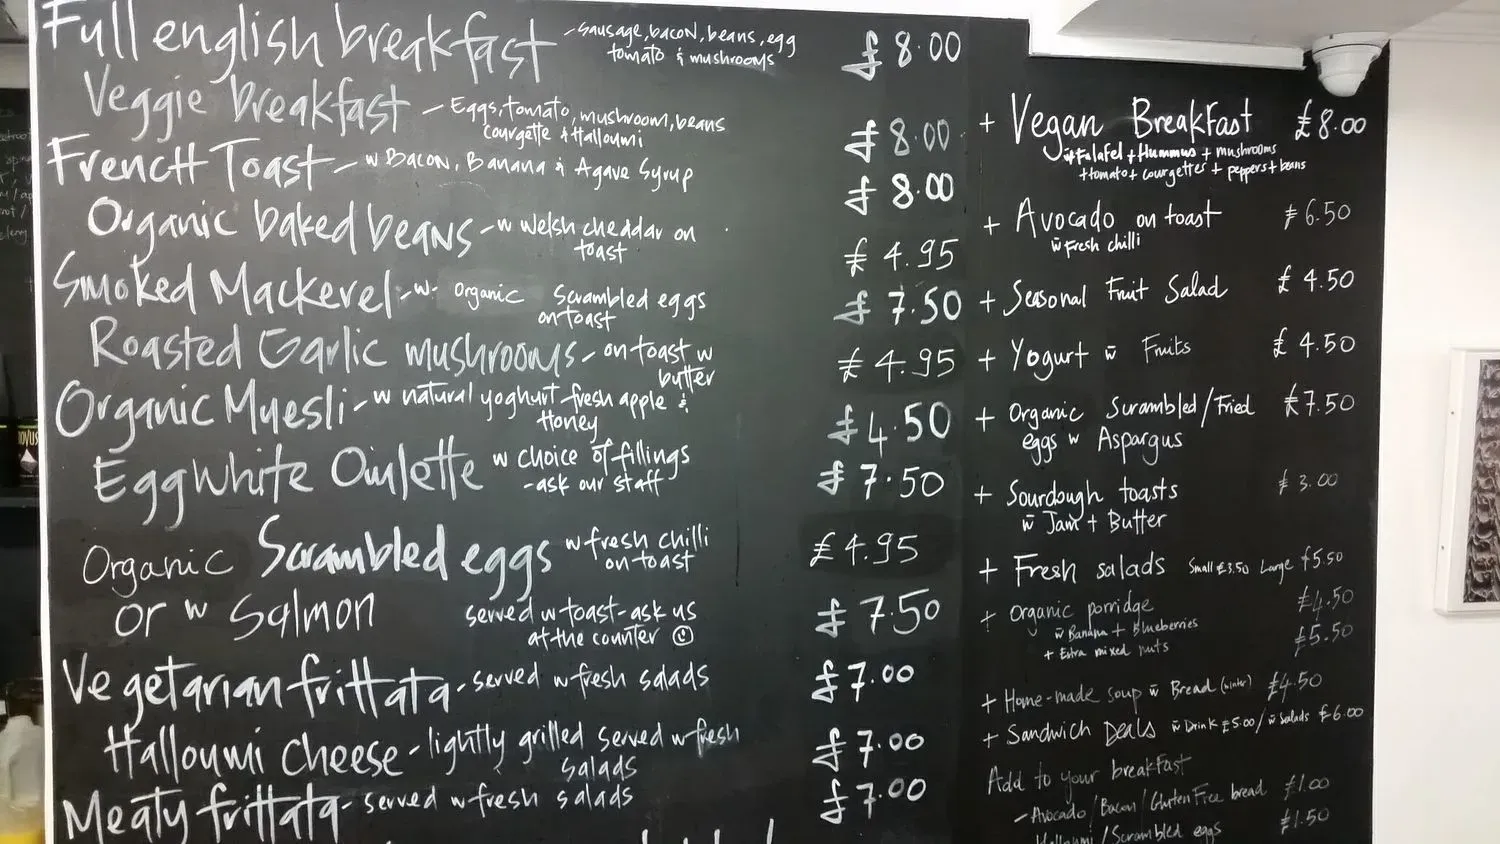 Full english breakfast - sausage, bacon, beans, egg £8.00
tomato & mushrooms
Veggie breakfast - Eggs, tomato, mushroom, beans £8.00
courgette & Halloumi
French Toast - w Bacon, Banana & Agave Syrup £8.00
Organic baked beans - w welsh cheddar on £4.95
toast
Smoked Mackerel - w organic scrambled eggs £7.50
on toast
Roasted Garlic mushrooms - on toast w £4.95
butter
Organic Muesli - w natural yoghurt fresh apple & £4.50
Honey
Egg White Omlette w choice of fillings £7.50
- ask our staff
Organic Scrambled eggs w fresh chilli £4.95
on toast
or w Salmon served w toast - ask us £7.50
at the counter
Vegetarian frittata - served w fresh salads £7.00
Halloumi Cheese - lightly grilled served w fresh £7.00
salads
Meaty frittata - served w fresh salads £7.00
+ Vegan Breakfast £8.00
w Falafel + Hummus + mushrooms
+ tomato + courgettes + peppers + beans
+ Avocado on toast £6.50
w Fresh chilli
+ Seasonal Fruit Salad £4.50
+ Yogurt w Fruits £4.50
+ Organic Scrambled/Fried £7.50
eggs w Aspargus
+ Sourdough toasts £3.00
w Jam + Butter
+ Fresh salads Small £3.50 Large £5.50
+ Organic porridge £4.50
w Banana + Blueberries
+ Extra mixed nuts £5.50
+ Home-made soup w Bread (winter) £4.50
+ Sandwich Deals w Drink £5.00/ w Salads £6.00
Add to your breakfast
- Avocado/Bacon/Gluten Free bread £1.00
Halloumi/Scrambled eggs £1.50